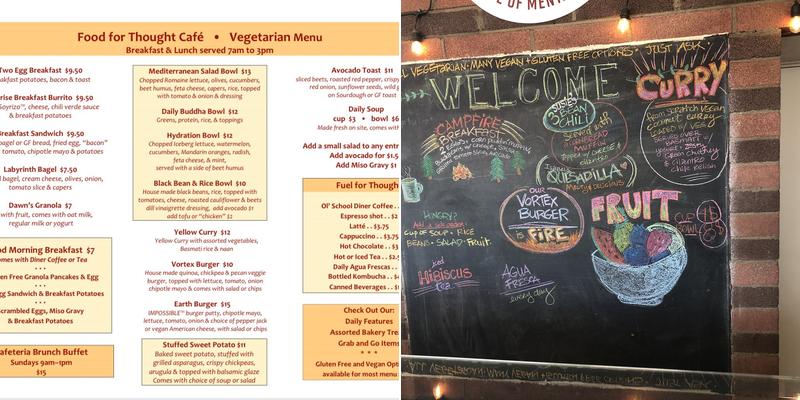 Food for Thought Café • Vegetarian Menu
Breakfast & Lunch served 7am to 3pm
Two Egg Breakfast $9.50
breakfast potatoes, bacon & toast
rise Breakfast Burrito $9.50
Soyrizo™, cheese, chili verde sauce
& breakfast potatoes
Breakfast Sandwich $9.50
bagel or GF bread, fried egg, "bacon"
tomato, chipotle mayo & potatoes
Labyrinth Bagel $7.50
bagel, cream cheese, olives, onion,
tomato slice & capers
Dawn's Granola $7
with fruit, comes with oat milk,
regular milk or yogurt
d Morning Breakfast $7
omes with Diner Coffee or Tea
• • •
en Free Granola Pancakes & Egg
• • •
gg Sandwich & Breakfast Potatoes
• • •
Scrambled Eggs, Miso Gravy
& Breakfast Potatoes
afeteria Brunch Buffet
Sundays 9am–1pm
$15
Mediterranean Salad Bowl $13
Chopped Romaine lettuce, olives, cucumbers,
beet humus, feta cheese, capers, rice, topped
with tomato & onion & dressing
Daily Buddha Bowl $12
Greens, protein, rice, & toppings
Hydration Bowl $12
Chopped Iceberg lettuce, watermelon,
cucumbers, Mandarin oranges, radish,
feta cheese, & mint,
served with a side of beet humus
Black Bean & Rice Bowl $10
House made black beans, rice, topped with
tomatoes, cheese, roasted cauliflower & beets
dill vinaigrette dressing, add avocado $1
add tofu or "chicken" $2
Yellow Curry $12
Yellow Curry with assorted vegetables,
Basmati rice & naan
Vortex Burger $10
House made quinoa, chickpea & pecan veggie
burger, topped with lettuce, tomato, onion
chipotle mayo & comes with salad or chips
Earth Burger $15
IMPOSSIBLE™ burger patty, chipotle mayo,
lettuce, tomato, onion & choice of pepper jack
or vegan American cheese, with salad or chips
Stuffed Sweet Potato $11
Baked sweet potato, stuffed with
grilled asparagus, crispy chickpeas,
arugula & topped with balsamic glaze
Comes with choice of soup or salad
Avocado Toast $11
sliced beets, roasted red pepper, crisp
red onion, sunflower seeds, wild g
on Sourdough or GF toast
Daily Soup
cup $3 • bowl $6
Made fresh on site, comes with
Add a small salad to any entr
Add avocado for $1.5
Add Miso Gravy $1
Fuel for Though
Ol' School Diner Coffee . .
Espresso shot . . $2
Latté . . $3.75
Cappuccino . . $3.7
Hot Chocolate . . $3
Hot or Iced Tea . . $2.5
Daily Agua Frescas . .
Bottled Kombucha . . $4
Canned Beverages . . $1
Check Out Our:
Daily Features
Assorted Bakery Trea
Grab and Go Items
* * *
Gluten Free and Vegan Opti
available for most menu
E OF MEN
VEGETARIAN · MANY VEGAN + GLUTEN FREE OPTIONS · JUST ASK
WELCOME
CURRY
from scratch vegan
coconut curry
loaded w/ veg
over
basmati
Green chutney
& cilantro
chili relish
CAMPFIRE
BREAKFAST
SUSIE'S
BEAN
CHILI
served with
cornbread
muffin
topped w/ cheese &
cilantro
QUESADILLA
Meaty delicious
OUR
VORTEX
BURGER
is FIRE
FRUIT
CUP $3
BOWL
HUNGRY?
Add a side order:
CUP OF SOUP · RICE
BEANS · SALAD · FRUIT
iced
Hibiscus
tea
AGUA
FRESCA
every day